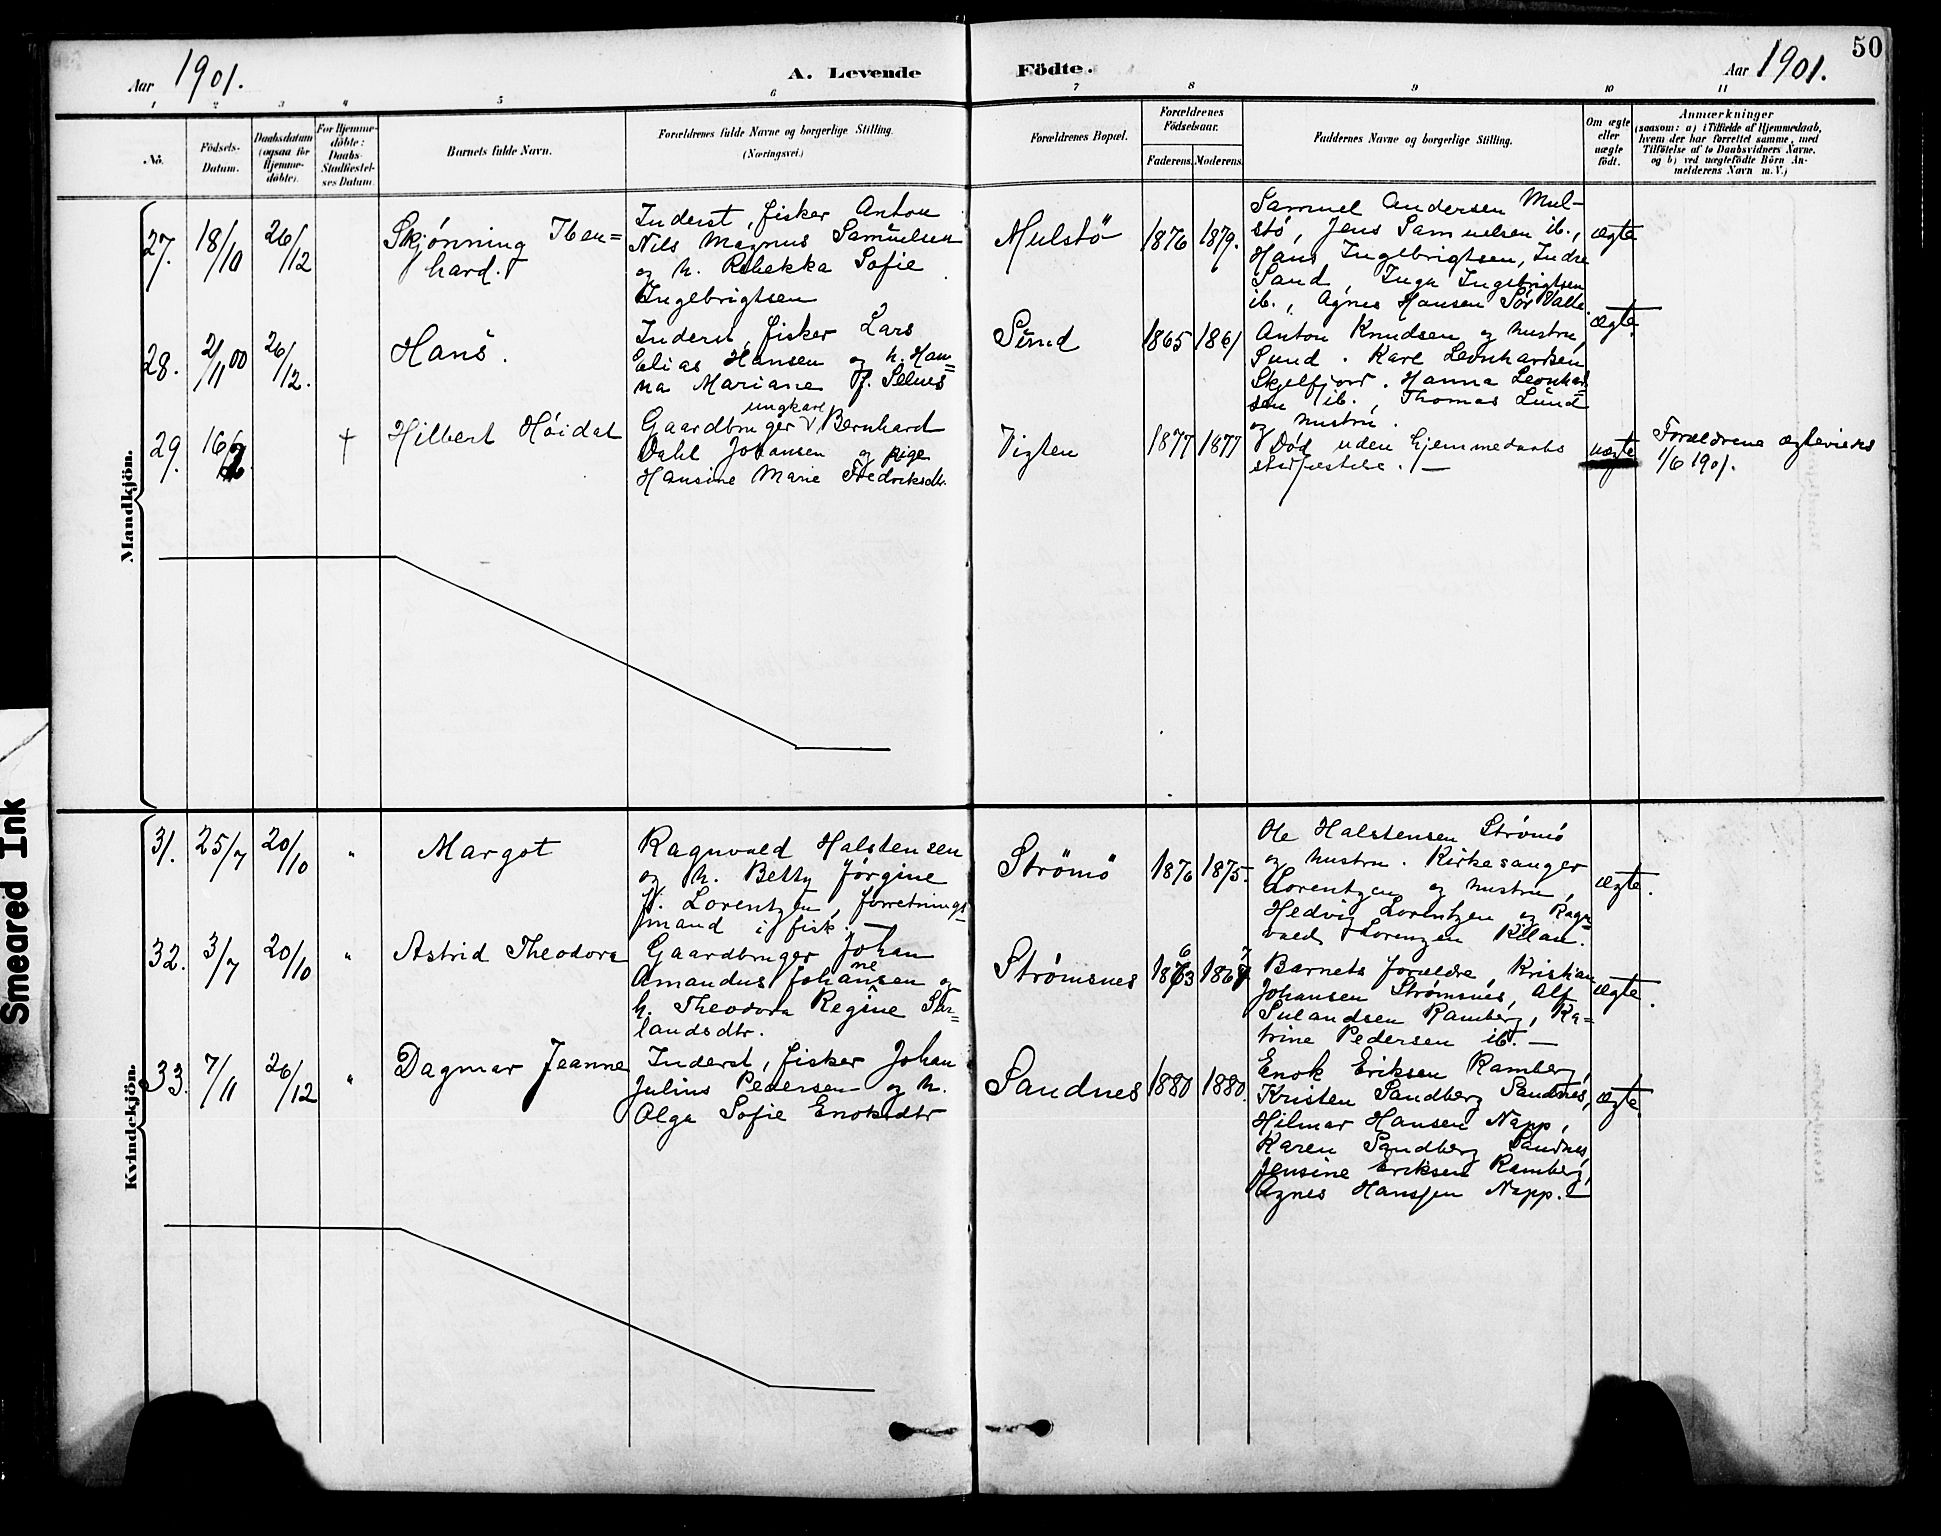 50
Aar 1901.
A. Levende Födte.
Aar 1901.
1 2 3 4 5 6 7 8 9 10 11
No.
Födsels-
Datum.
Daabsdatum
(ogsaa for
Hjemme-
döbte).
For Hjemme-
döbte:
Daabs-
Stadfæstel-
ses Datum.
Barnets fulde Navn.
Forældrenes fulde Navne og borgerlige Stilling.
(Næringsvei.)
Forældrenes Bopæl.
Forældrenes
Födselsaar.
Faderens. Moderens.
Faddernes Navne og borgerlige Stilling.
Om ægte
eller
uægte
födt.
Anmærkninger
(saasom: a) i Tilfælde af Hjemmedaab,
hvem der har forrettet samme, med
Tilföielse af to Daabsvidners Navne,
og b) ved uægtefödte Börn An-
melderens Navn m. V.)
Mandkjön.
27.
18/10
26/12
Skjønning
hard.
Inderst, fisker Anton
Nils Magnus Samuelsen
og h. Rebekka Sofie
Ingebrigtsen
Mulstö
1876
1879.
Samuel Andersen Mul-
stö, Jens Samuelsen ib.,
Hans Ingebrigtsen, Indre
Sand, Inga Ingebrigtsen
ib., Agnes Hansen Sör Valle.
ægte
28.
2/11 00
26/12.
Hans.
Inderst, fisker Lars
Elias Hansen og h. Han=
na Mariane f. Selnes
Sund
1865
1861
Anton Knudsen og hustru,
Sund. Karl Leonhardsen
Skjelfjord. Hanna Leonhard=
sen ib., Thomas Lund
og hustru.
ægte
29.
16/
†
Hilbert Höidal
ungkarl
Gaardbruger V Bernhard
Dahl Johansen og pige
Hansine Marie Fredriksdtr.
Vigten
1877
1877
Død uden hjemmedaabs
stadfæstelse. —
uægte
Forældrene ægteviede
1/6 1901.
Kvindekjön.
31.
25/7
20/10
"
Margot
Ragnvald Halstensen
og h. Betty Jørgine
f. Lorentzen, forretnings-
mand i fisk.
Strömö
1876
1875.
Ole Halstensen Strömö
og hustru. Kirkesanger
Lorentzen og hustru,
Hedvig Lorentzen og Ragn=
vald Lorenzen
ægte.
32.
3/7
20/10
"
Astrid Theodora
Gaardbruger Johan
Amandus Johannesen og
h. Theodora Regine Su=
landsdtr.
Strømsnes
1863
1867
Barnets forældre, Kristian
Johansen Strømsnes, Alf
Sulandsen Ramberg, Ka=
trine Pedersen ib. —
ægte.
33.
7/11
26/12
"
Dagmar Jeanne
Inderst, fisker Johan
Julius Pedersen og h.
Olga Sofie Enoksdtr
Sandnes
1880
1880.
Enok Eriksen Ramberg,
Kristen Sandberg Sandnes,
Hilmar Hansen Napp,
Karen Sandberg Sandnes,
Jensine Eriksen Ramberg,
Agnes Hansen Napp. —
ægte.
Smeared Ink